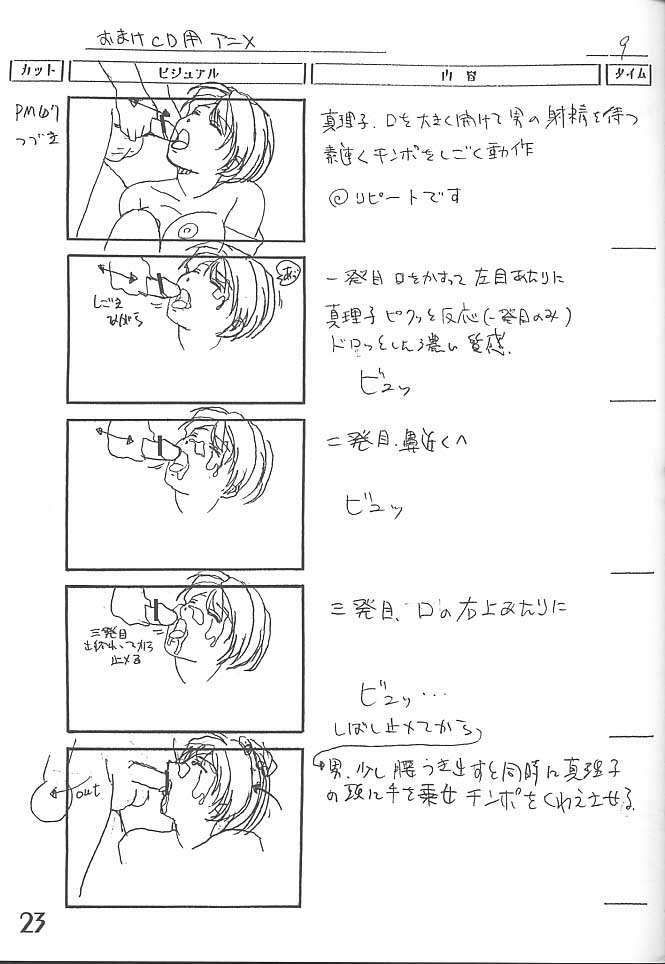 おまけCD用 アニメ
9
カット
ビジュアル
内容
タイム
PM
つづき
真理子、口を大きく開けて男の射精を待つ
素速くチンポをしごく動作
◎リピートです
しごき
ながら
一発目 口をかすって左目あたりに
真理子ピクッと反応(一発目のみ)
ドロッとした濃い質感.
ビュッ
二発目.鼻近くへ
ビュッ
三発目
止メる
三発目、口の右上あたりに
ビュッ・・・
しばし止メてから
out
男、少し腰つき出すと同時に真理子
の頭に手を乗せチンポをくわえさせる.
23